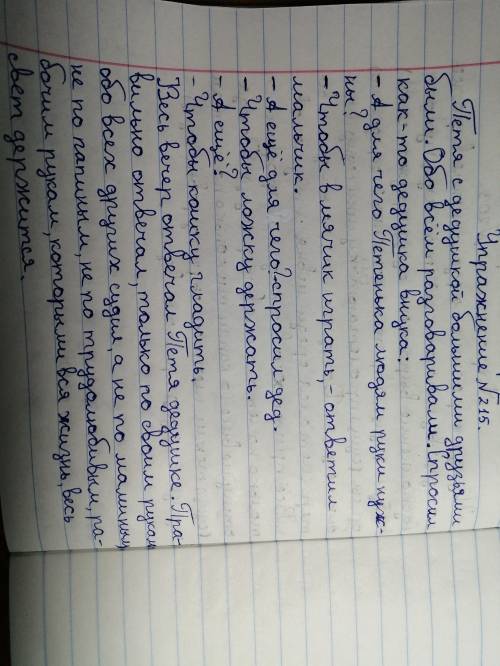 Упражнение №215.
Петя с дедушкой большими друзьями
были. Обо всём разговаривали. Спросил
как-то дедушка внука:
- А для чего Петенька людям руки нуж-
ны?
- Чтобы в мячик играть, - ответил
мальчик.
- А ещё для чего? - спросил дед.
- Чтобы ложку держать.
- А ещё?
- Чтобы кошку гладить.
Весь вечер отвечал Петя дедушке. Пра-
вильно отвечал, только по своим рукам
обо всех других судил, а не по маминым,
не по папиным, не по трудолюбивым, ра-
бочим рукам, которыми вся жизнь, весь
свет держится.